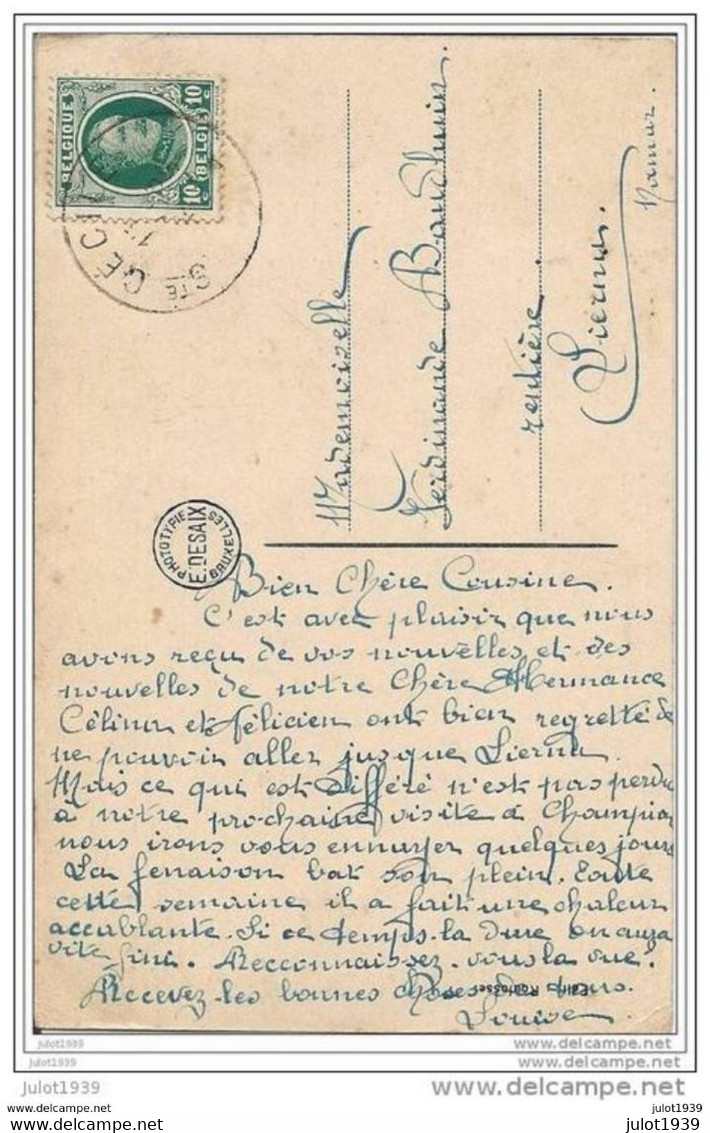 BELGIQUE
BELGIË
10 c
10 c
STE CÉCI
Mademoiselle
Ferdinande Baudhuin.
rentière.
Liernu.
Namur
PHOTOTYPIE
E. DESAIX
BRUXELLES
Bien Chère Cousine.
C'est avec plaisir que nous
avons reçu de vos nouvelles et des
nouvelles de notre Chère Hermance
Célina et Félicien ont bien regretté de
ne pouvoir aller jusque Liernu.
Mais ce qui est différé n'est pas perdu
à notre prochaine visite à Champion
nous irons vous ennuyer quelques jours
La fenaison bat son plein. Toute
cette semaine il a fait une chaleur
accablante. Si ce temps-la dure on aura
vite fini. Recconnaissez-vous la vue?
Recevez les bonnes choses de nous.
Louise
Edit.
julot1939
www.delcampe.net
julot1939
www.delcampe.net
julot1939
www.delcampe.net
www.delcampe.com
julot1939
www.delcampe.com
julot1939